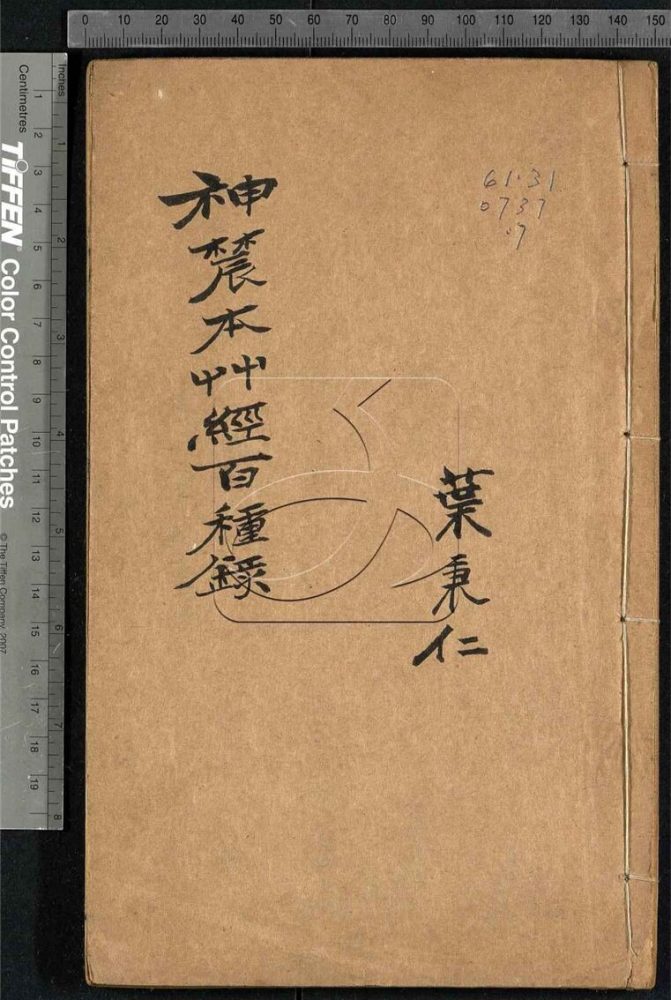 0 10 20 30 40 50 60 70 80 90 100 110 120 130 140 150
inches 1 2 3 4 5 6 7 8
Centimetres 1 2 3 4 5 6 7 8 6 10 11 12 13 14 15 16 17 18 19
TIFFEN Color Control Patches
© The Tiffen Company, 2007
61.31
0737
.7
葉秉仁
神農本艸經百種錄